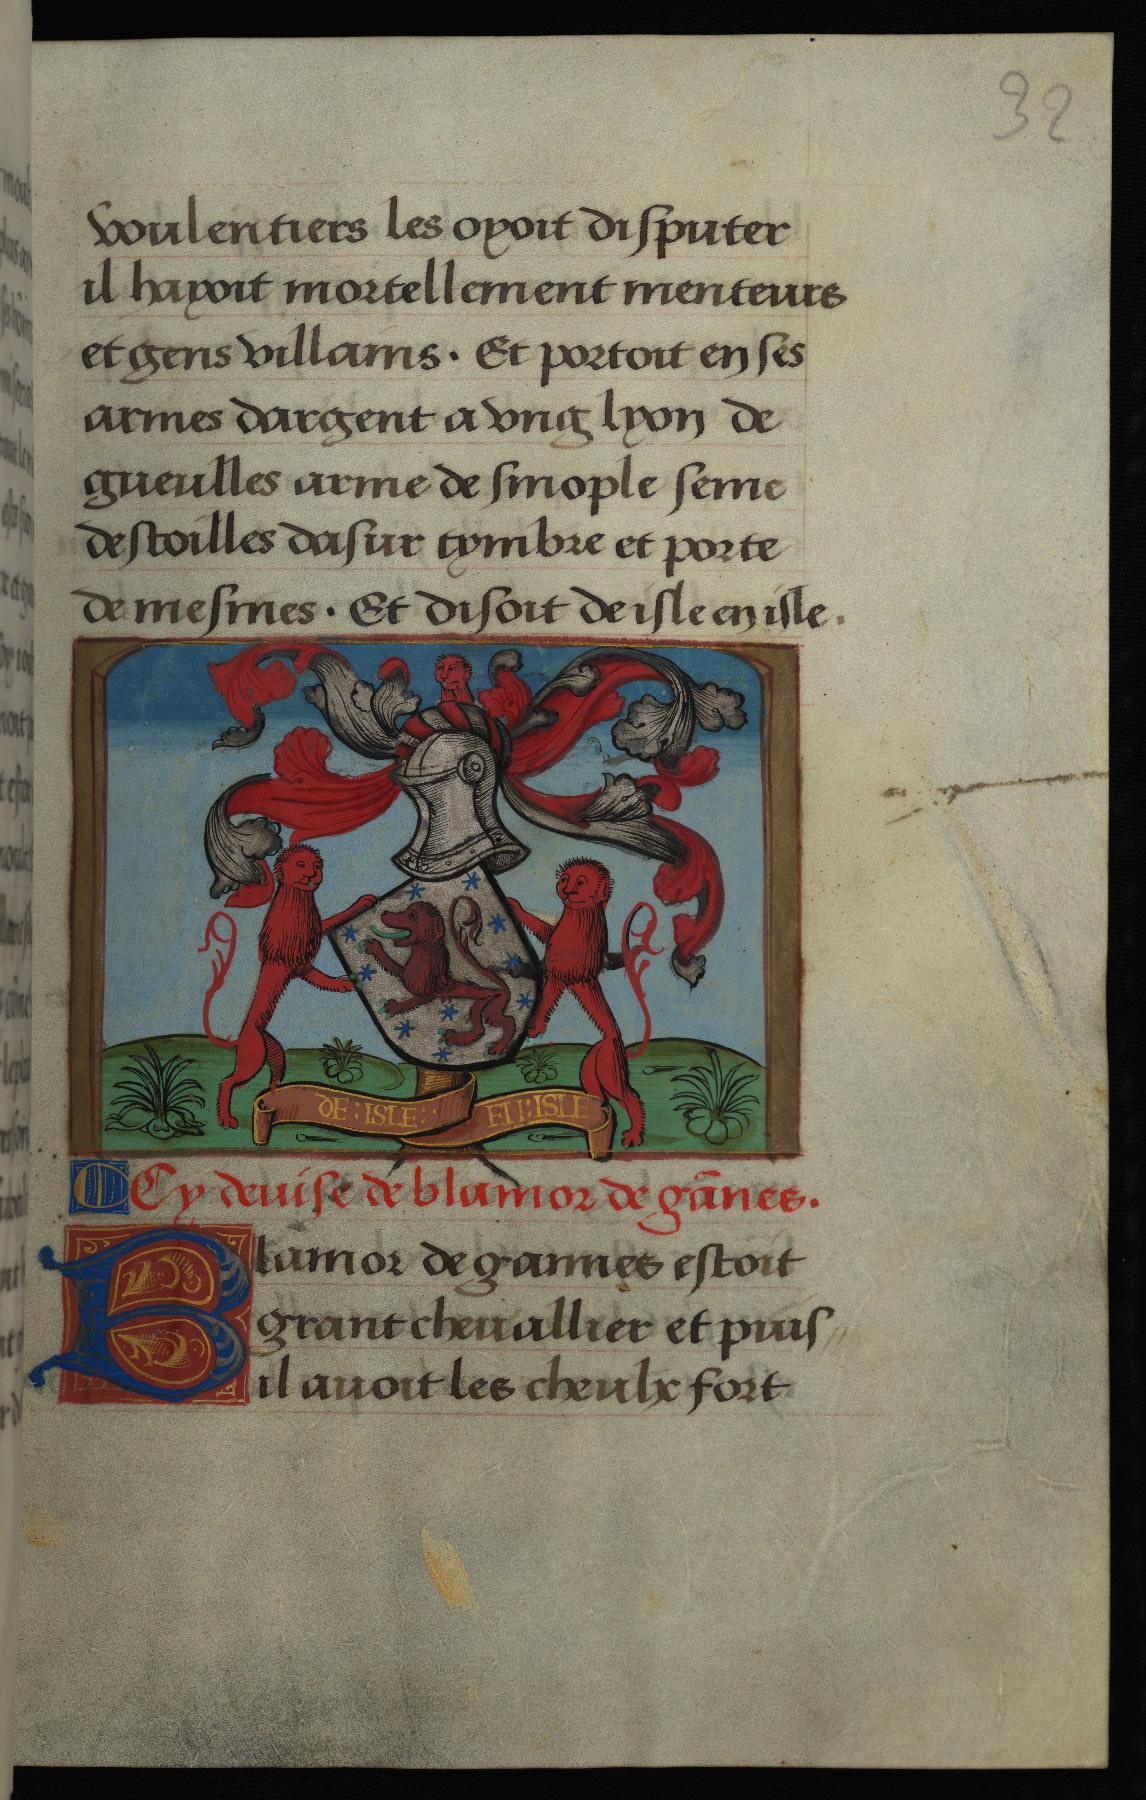 32
voulentiers les oyoit disputer
il hayoit mortellement menteurs
et gens villains. Et portoit en ses
armes dargent a ung lyon de
gueulles arme de sinople seme
destoilles dasur tymbre et porte
de mesmes. Et disoit de isle en isle.
DE : ISLE : EN : ISLE
Cy devise de blamor de gānes.
Blamor de gannes estoit
grant chevallier et puis
il avoit les cheulx fort